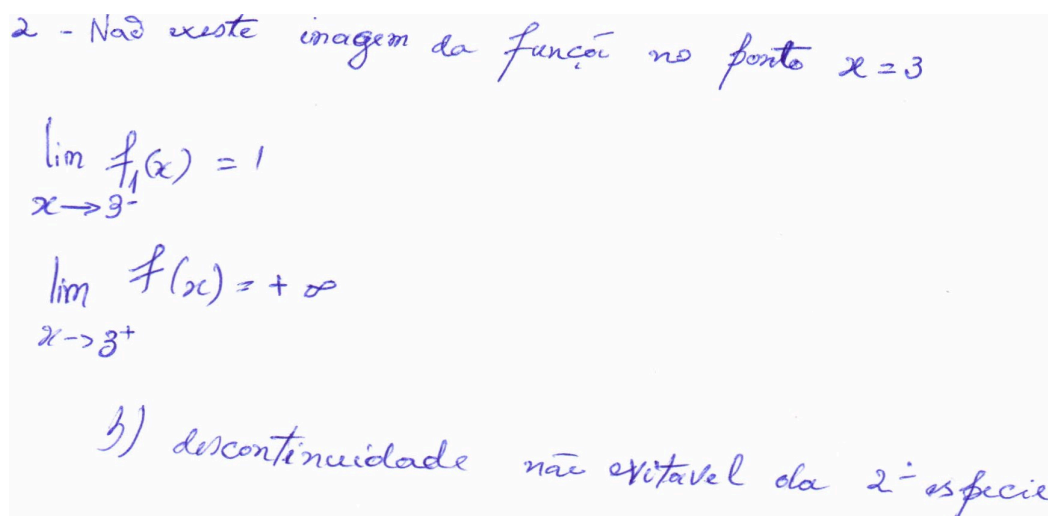 2 - Não existe imagem da função no ponto x = 3
lim f₁(x) = 1
x→3⁻
lim f(x) = + ∞
x->3⁺
b) descontinuidade não evitavel da 2ª especie